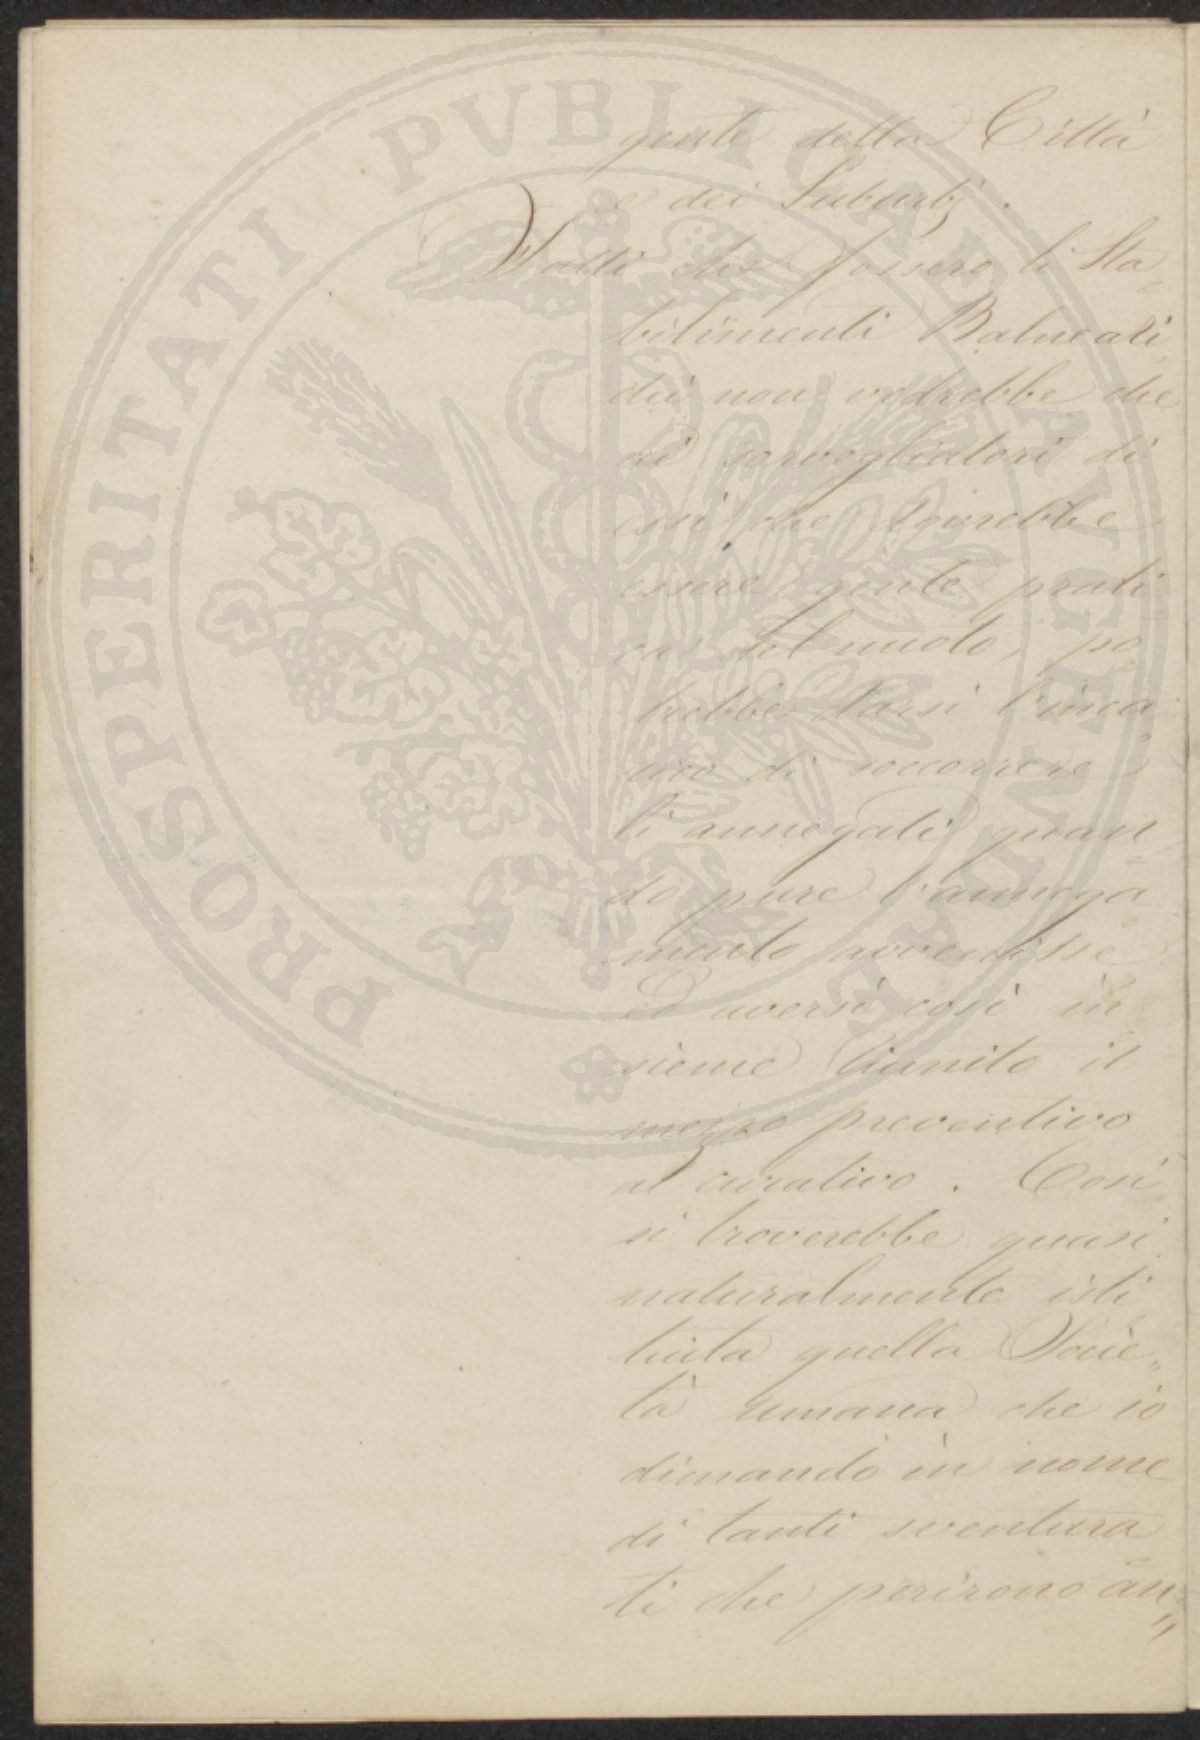 gente della Città
e dei Suburbj.
Fatti che fossero li Sta=
bilimenti Balneari
chi non vedrebbe che
ai sorvegliatori di
essi che dovrebbe
essere gente prati
ca del nuoto, po=
trebbe darsi l'inca=
rico di soccorrere
li annegati quan=
do pure l'annega=
mento avvenisse
ed aversi così in
sieme riunito il
mezzo preventivo
al curativo. Così
si troverebbe quasi
naturalmente isti
tuita quella Socie=
tà umana che io
dimando in nome
di tanti sventura
ti che perirono an=
PROSPERITATI PVBLICAE AVGENDAE